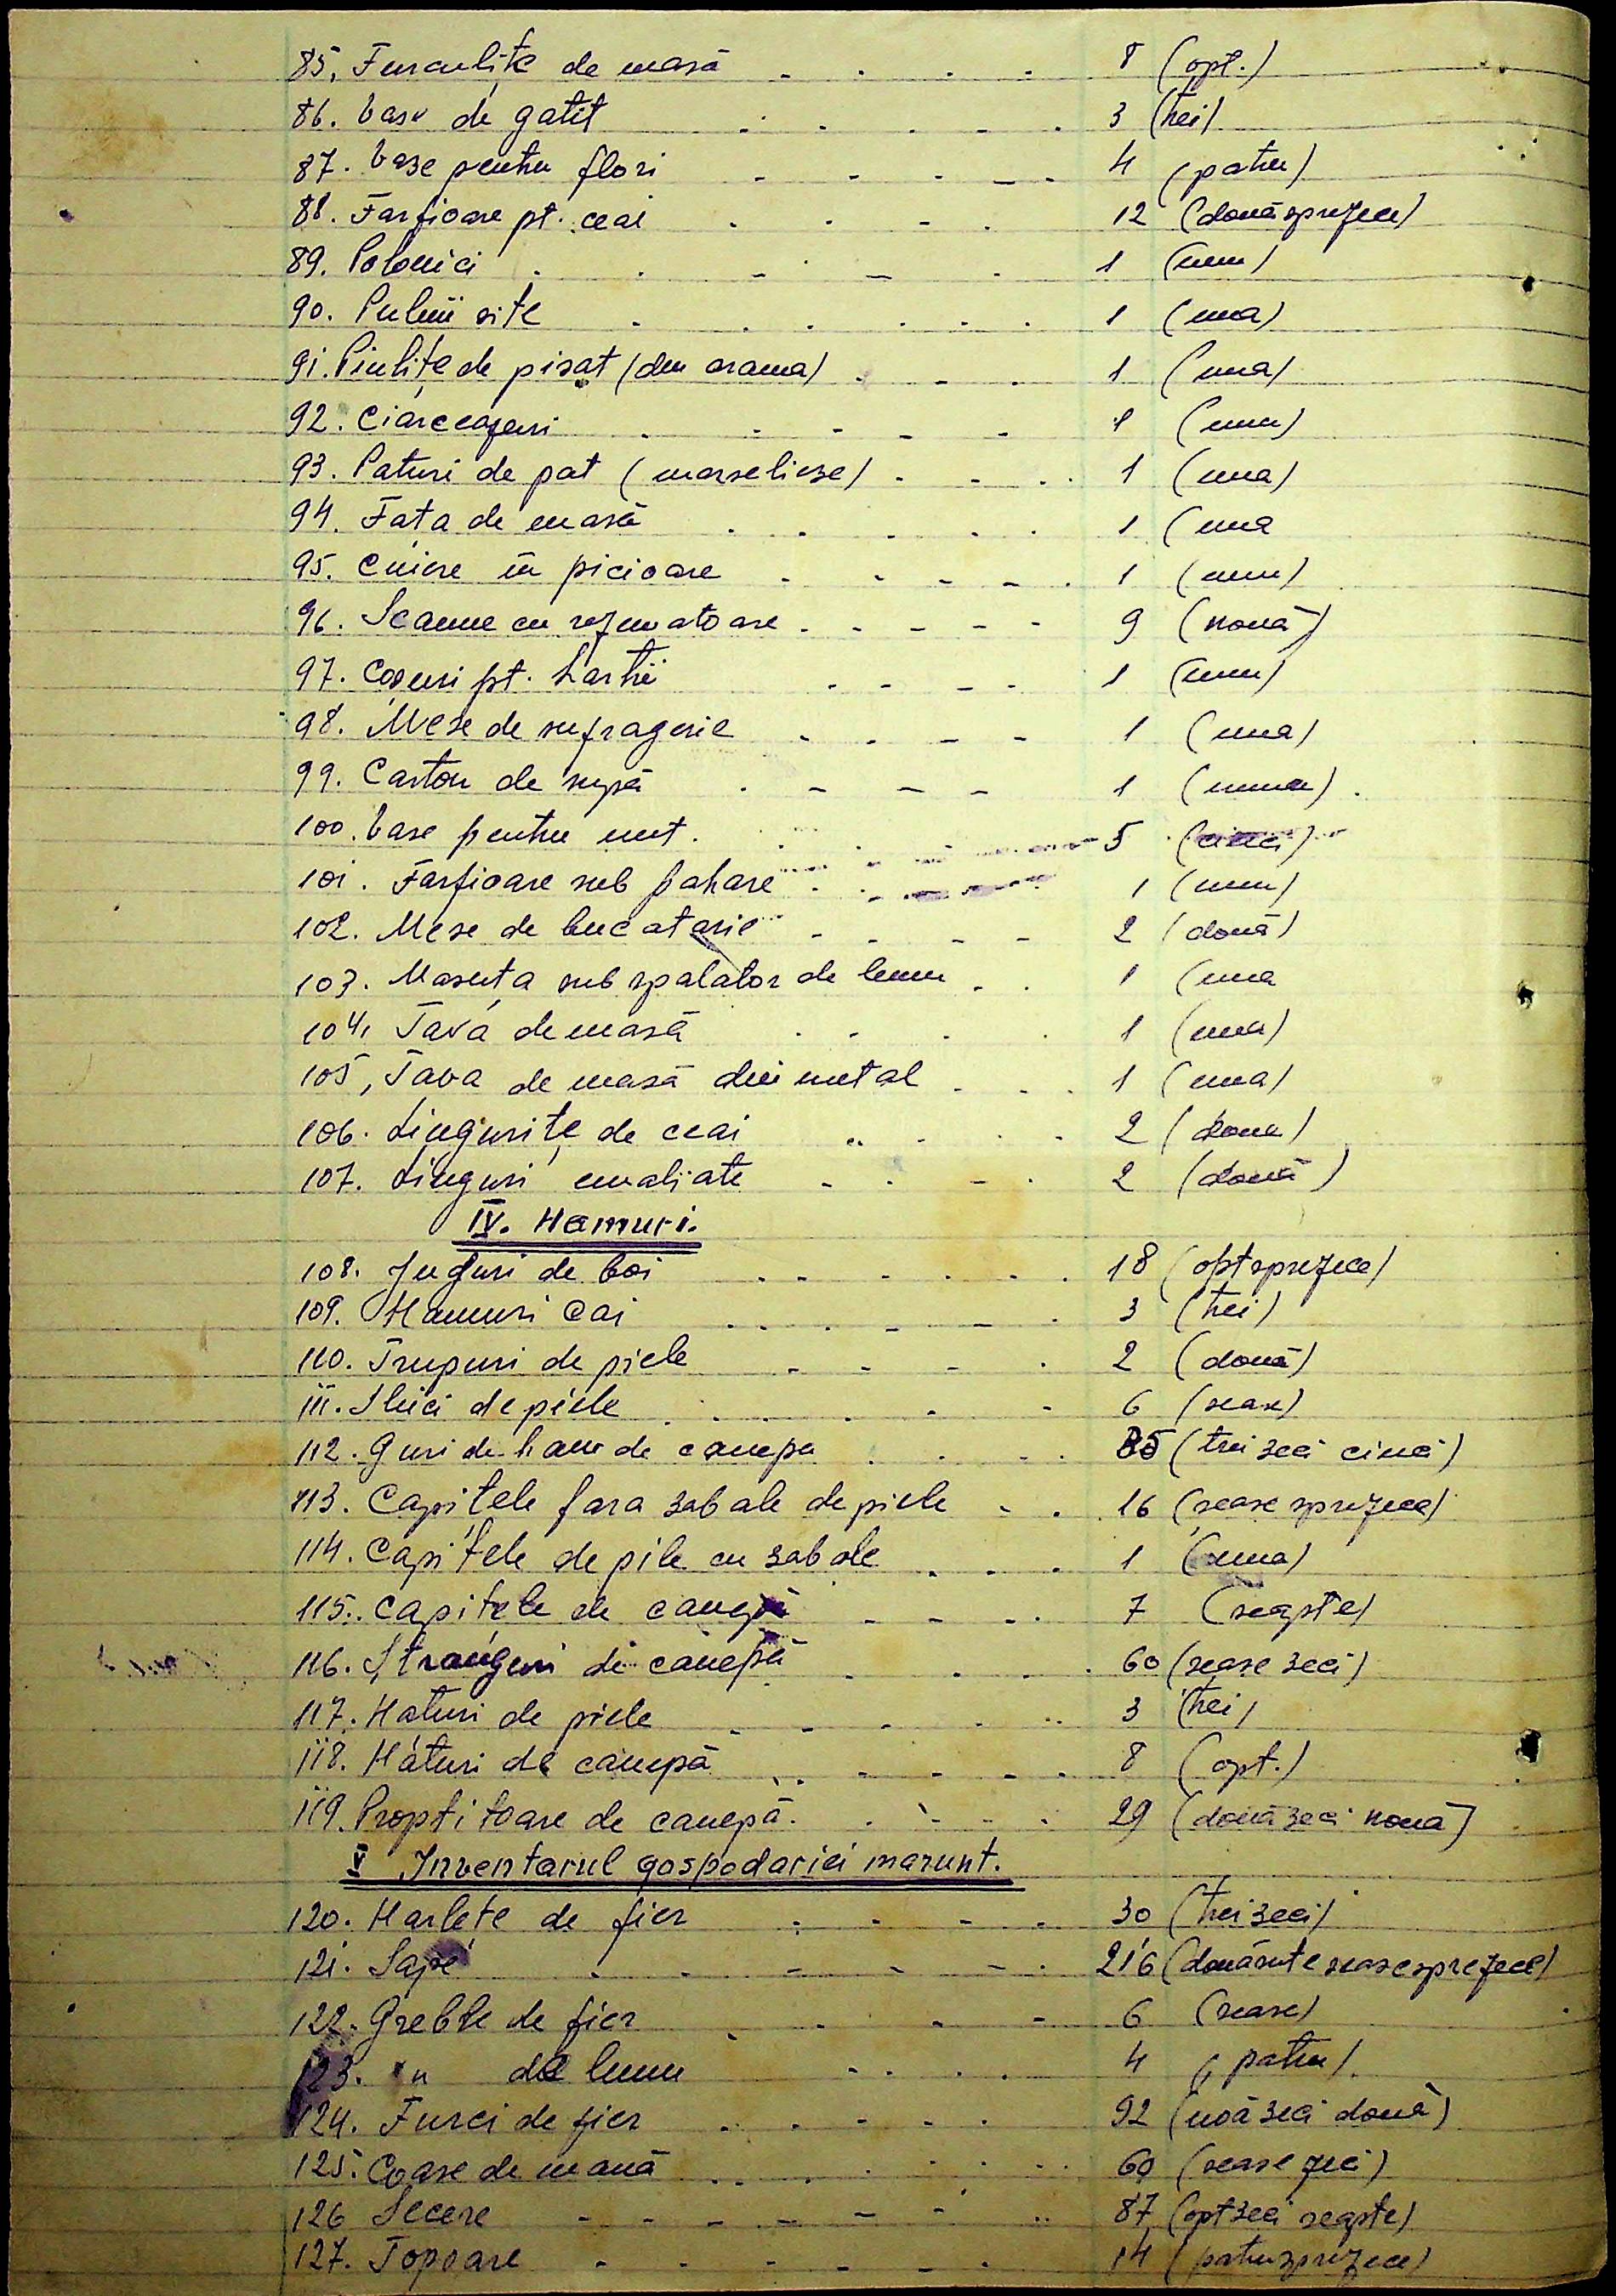 85. Furculițe de masă 8 (opt.)
86. Vase de gatit 3 (trei)
87. Vase pentru flori 4 (patru)
88. Farfioare pt. ceai 12 (douăsprezece)
89. Polonici 1 (unu)
90. site 1 (una)
91. Piulițe de pisat (din arama) 1 (una)
92. Ciarceafuri 1 (unu)
93. Paturi de pat (marselieze) 1 (una)
94. Fața de masă 1 (una
95. Cuiere în picioare 1 (unu)
96. Scaune cu rezmatoare 9 (nouă)
97. Coșuri pt. hartii 1 (unu)
98. Mese de sufragerie 1 (una)
99. Caston de supă 1 (unu)
100. Vase pentru unt. 5 (cinci)
101. Farfioare sub pahare 1 (unu)
102. Mese de bucatarie 2 (două)
103. Masuța sub spalator de lemn 1 (una
104. Tava de masă 1 (una)
105. Tava de masă din metal 1 (una)
106. Lingurițe de ceai 2 (doua)
107. Linguri emaliate 2 (două)
IV. Hamuri.
108. Juguri de boi 18 (optsprezece)
109. Hamuri cai 3 (trei)
110. Trupuri de piele 2 (două)
111. Sleici de piele 6 (sease)
112. Guri de ham de canepa 35 (trei zeci cinci)
113. Capițele fara zabale de piele 16 (seasesprezece)
114. Capițele de pile cu zabale 1 (una)
115. Capițele de canepă 7 (seapte)
116. Ștranguri de canepă 60 (sease zeci)
117. Haturi de piele 3 (trei)
118. Hături de canepă 8 (opt.)
119. Proptitoare de canepă. 29 (două zeci nouă)
V Inventarul gospodariei marunt.
120. Harlețe de fier 30 (trei zeci)
121. Sape 216 (douăsute seasesprezece)
122. Greble de fier 6 (sease)
123. " de lemn 4 (patru)
124. Furci de fier 92 (noă zeci două)
125. Coase de mană 60 (sease zeci)
126 Secere 87 (optzeci seapte)
127. Topoare 14 (patrusprezece)